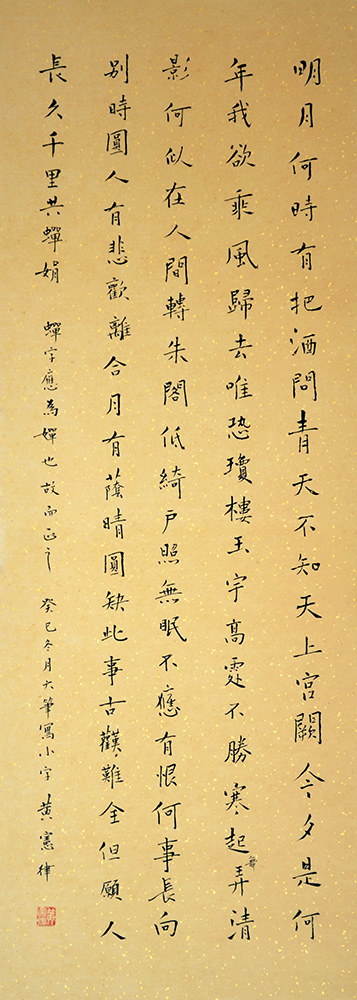 明月何時有把酒問青天不知天上宮闕今夕是何
年我欲乘風歸去唯恐瓊樓玉宇高處不勝寒起舞弄清
影何似在人間轉朱閣低綺戶照無眠不應有恨何事長向
別時圓人有悲歡離合月有蔭晴圓缺此事古歎難全但願人
長久千里共蟬娟 蟬字應為嬋也故而正之 癸巳冬月大筆寫小字黃憲律